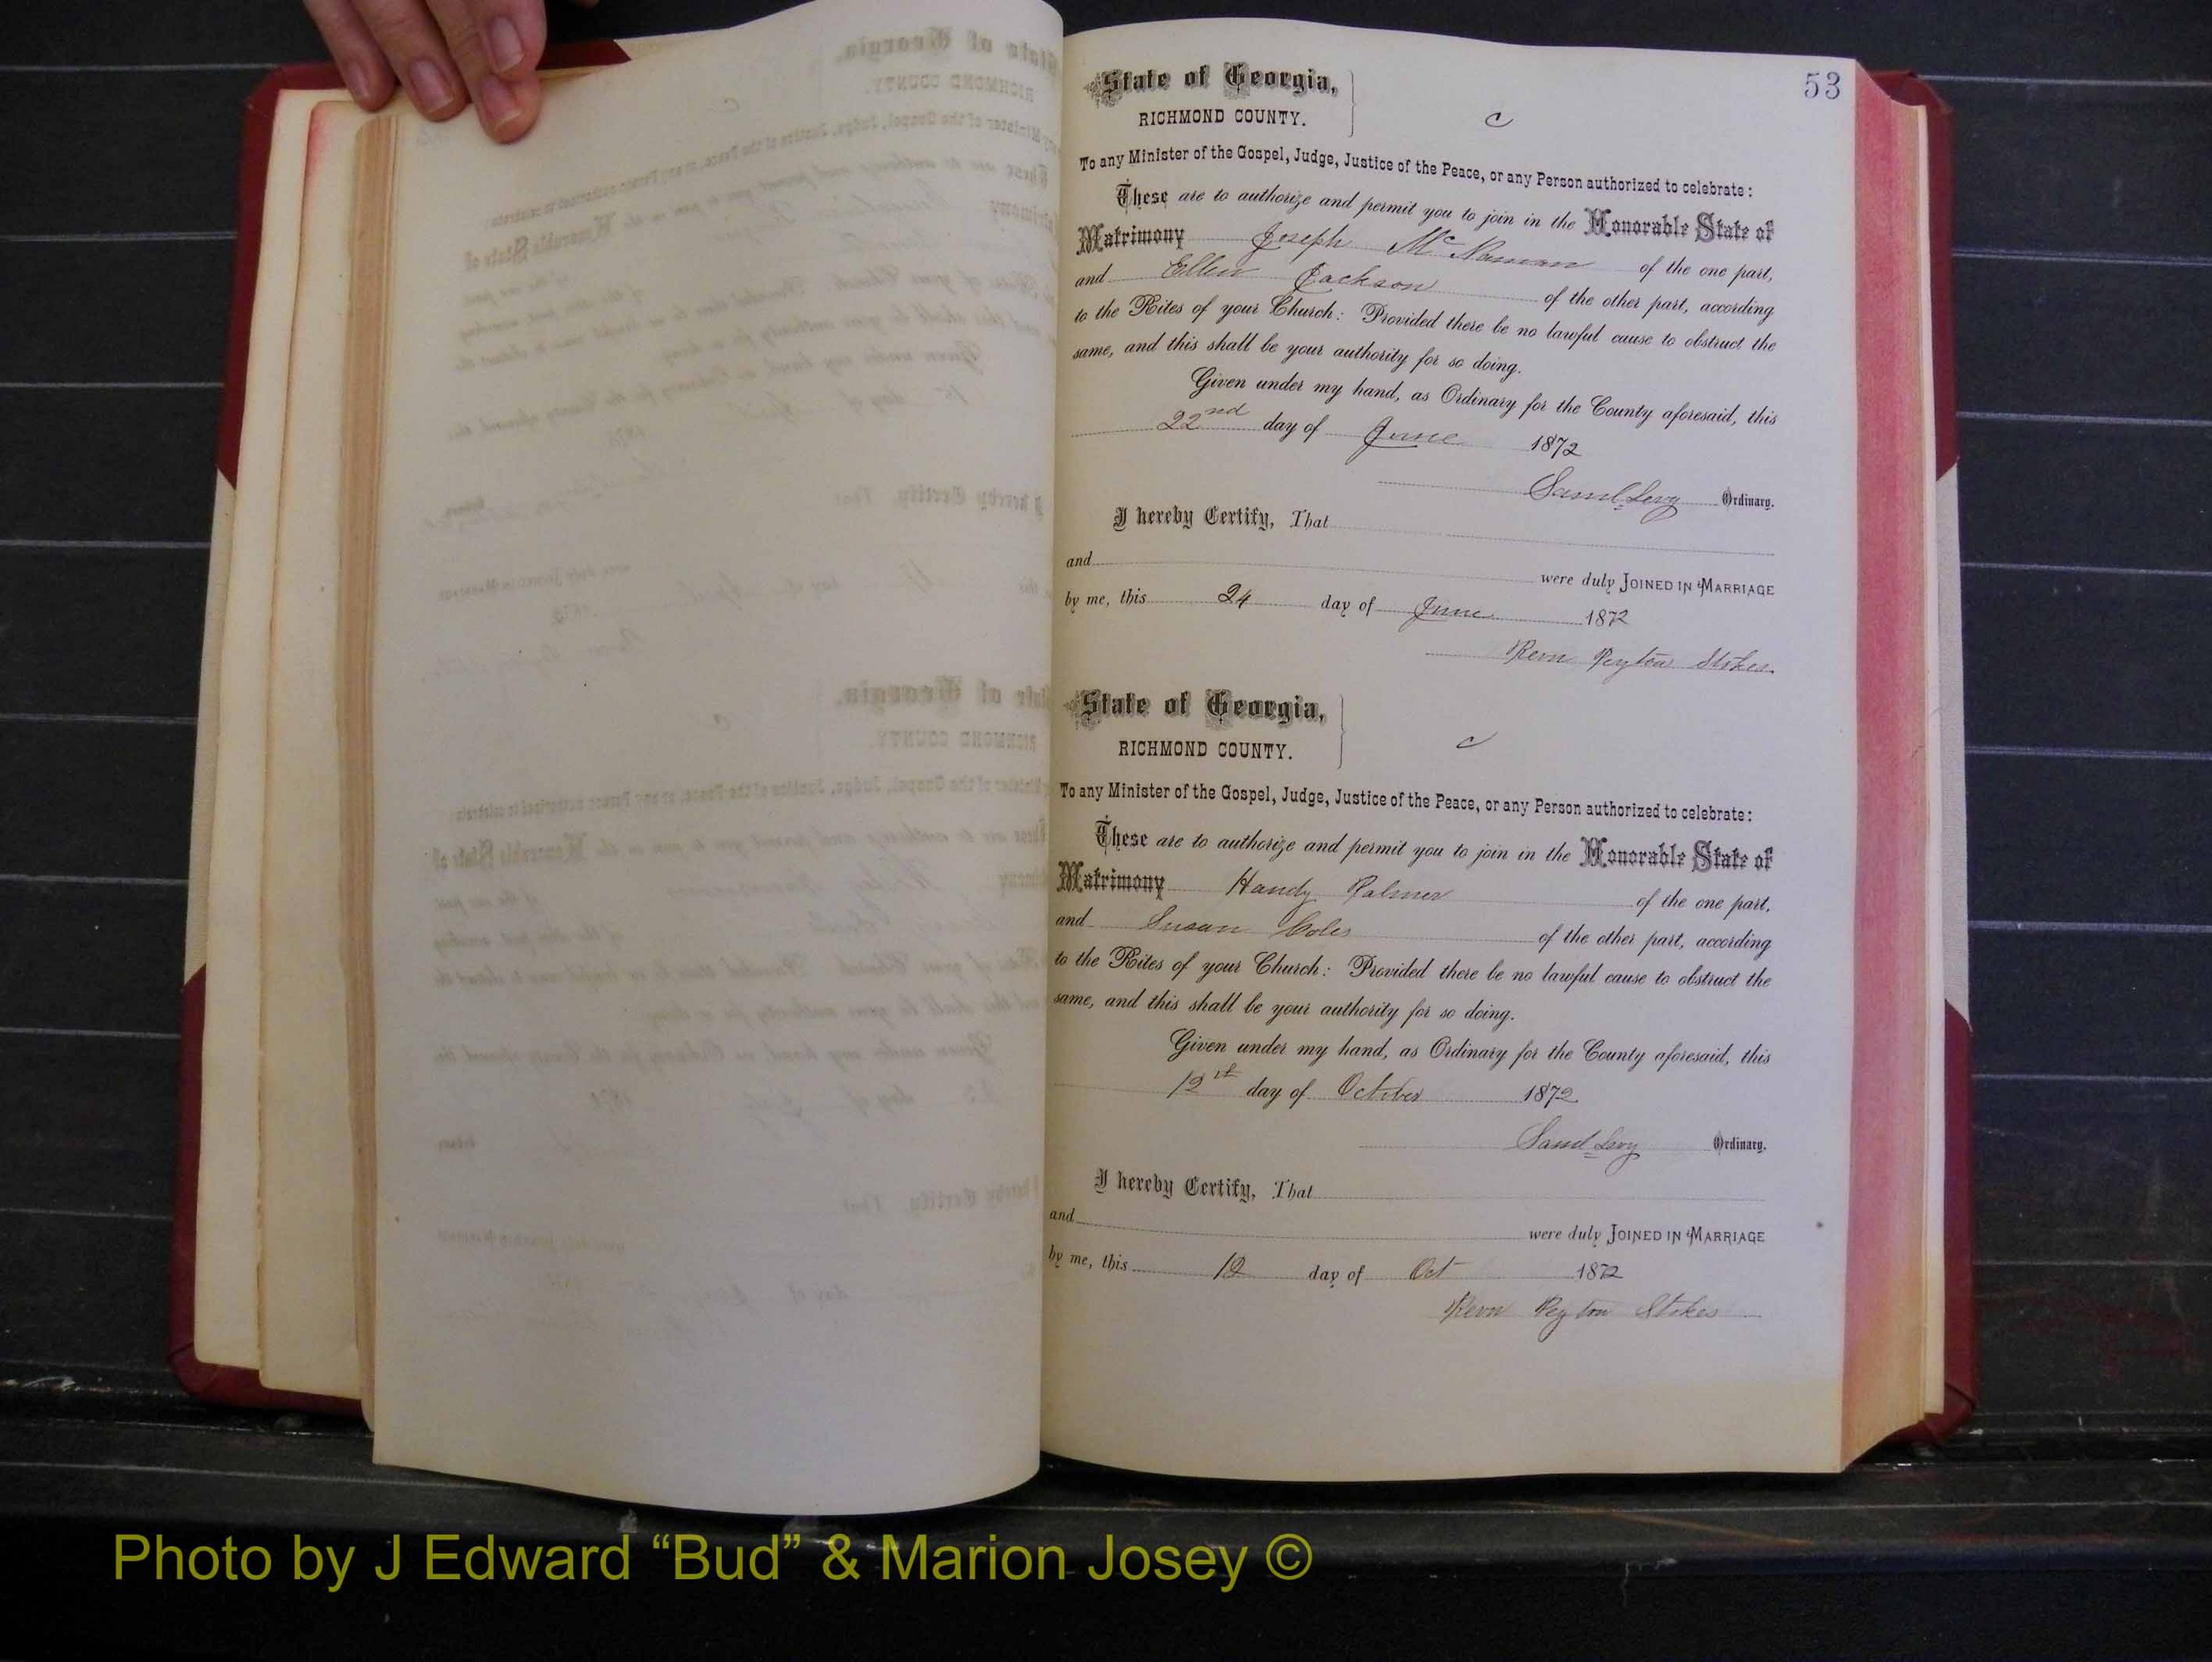 53
State of Georgia,
RICHMOND COUNTY.
c
To any Minister of the Gospel, Judge, Justice of the Peace, or any Person authorized to celebrate:
These are to authorize and permit you to join in the Honorable State of
Matrimony Joseph Mc Naman of the one part,
and Ellen Jackson of the other part, according
to the Rites of your Church: Provided there be no lawful cause to obstruct the
same, and this shall be your authority for so doing.
Given under my hand, as Ordinary for the County aforesaid, this
22nd day of June 1872
Saml Levy Ordinary.
I hereby Certify, That
and were duly JOINED IN MARRIAGE
by me, this 24 day of June 1872
Revn Peyton Stokes
State of Georgia,
RICHMOND COUNTY.
c
To any Minister of the Gospel, Judge, Justice of the Peace, or any Person authorized to celebrate:
These are to authorize and permit you to join in the Honorable State of
Matrimony Handy Palmer of the one part,
and Susan Coles of the other part, according
to the Rites of your Church: Provided there be no lawful cause to obstruct the
same, and this shall be your authority for so doing.
Given under my hand, as Ordinary for the County aforesaid, this
12th day of October 1872
Saml Levy Ordinary.
I hereby Certify, That
and were duly JOINED IN MARRIAGE
by me, this 12 day of Oct 1872
Revn Peyton Stokes
Photo by J Edward “Bud” & Marion Josey ©